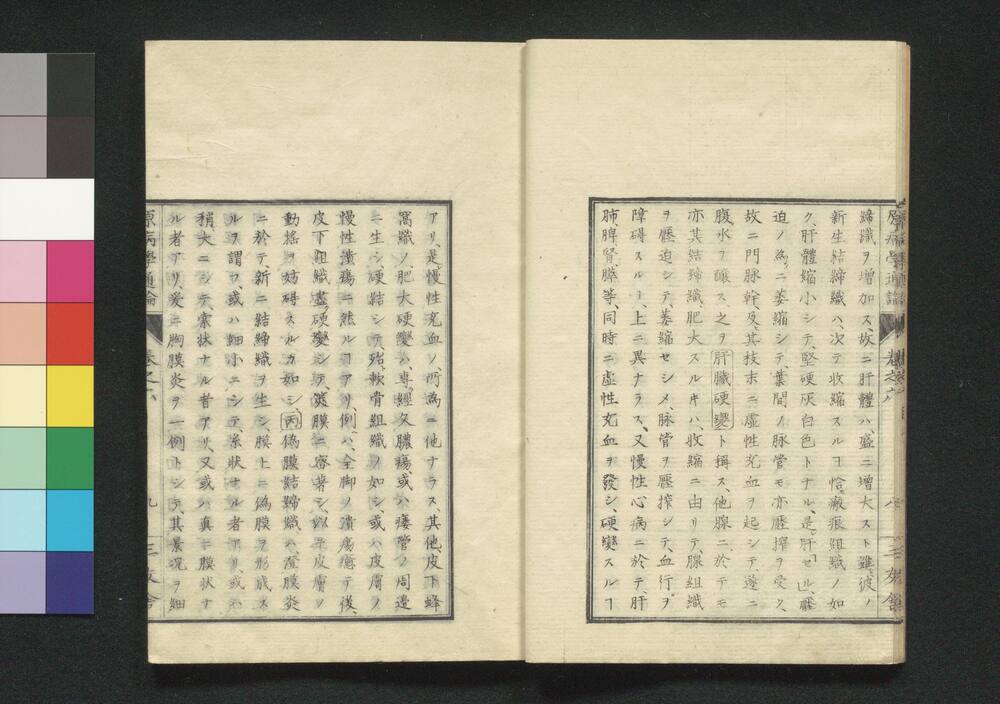 蹄織ヲ増加ス、故ニ肝體ハ、盛ニ増大スト雖、彼ノ
新生結締織ハ、次テ收縮スルヿ恰瘢痕組織ノ如
ク、肝體縮小シテ、堅硬灰白色トナル、是、肝「セル」壓
迫ノ為ニ萎縮シテ、葉間ノ脉管モ亦壓搾ヲ受ク、
故ニ門脉幹、及其枝末ニ虚性充血ヲ起シテ、遂ニ
腹水ヲ釀ス之ヲ肝臓硬變ト稱ス、他腺ニ於テモ
亦其結締織、肥大スルキハ、收縮ニ由リテ、腺組織
ヲ壓迫シテ、萎縮セシメ、脉管ヲ壓搾シテ、血行ヲ
障碍スルヿ、上ニ異ナラス、又慢性心病ニ於テ、肝
肺、脾、腎、膵等、同時ニ虚性充血ヲ發シ、硬變スルヿ
アリ、是慢性充血ノ所為ニ他ナラス、其他、皮下蜂
窩織ノ肥大硬變ハ、專、經久膿瘍、或ハ瘻管ノ周邊
ニ生シ、硬結シテ、殆、軟骨組織ノ如シ、或ハ皮膚ノ
慢性潰瘍ニ然ルヿアリ、例ハ、全脚ノ潰瘍癒テ後、
皮下組織盡硬變シテ、筴膜ニ密著シ、以テ皮膚ノ
動搖ヲ妨碍スルカ如シ、丙偽膜結締織ハ、漿膜炎
ニ於テ、新ニ結締織ヲ生シ、膜上ニ偽膜ヲ形成ス
ルヲ謂フ、或ハ細小ニシテ、糸狀ナル者アリ、或ハ
稍大ニシテ、索狀ナル者アリ、又或ハ真ニ膜狀ナ
ル者アリ、爰ニ胸膜炎ヲ一例トシテ、其景況ヲ細
原病學通論 卷之六 九 三友舎